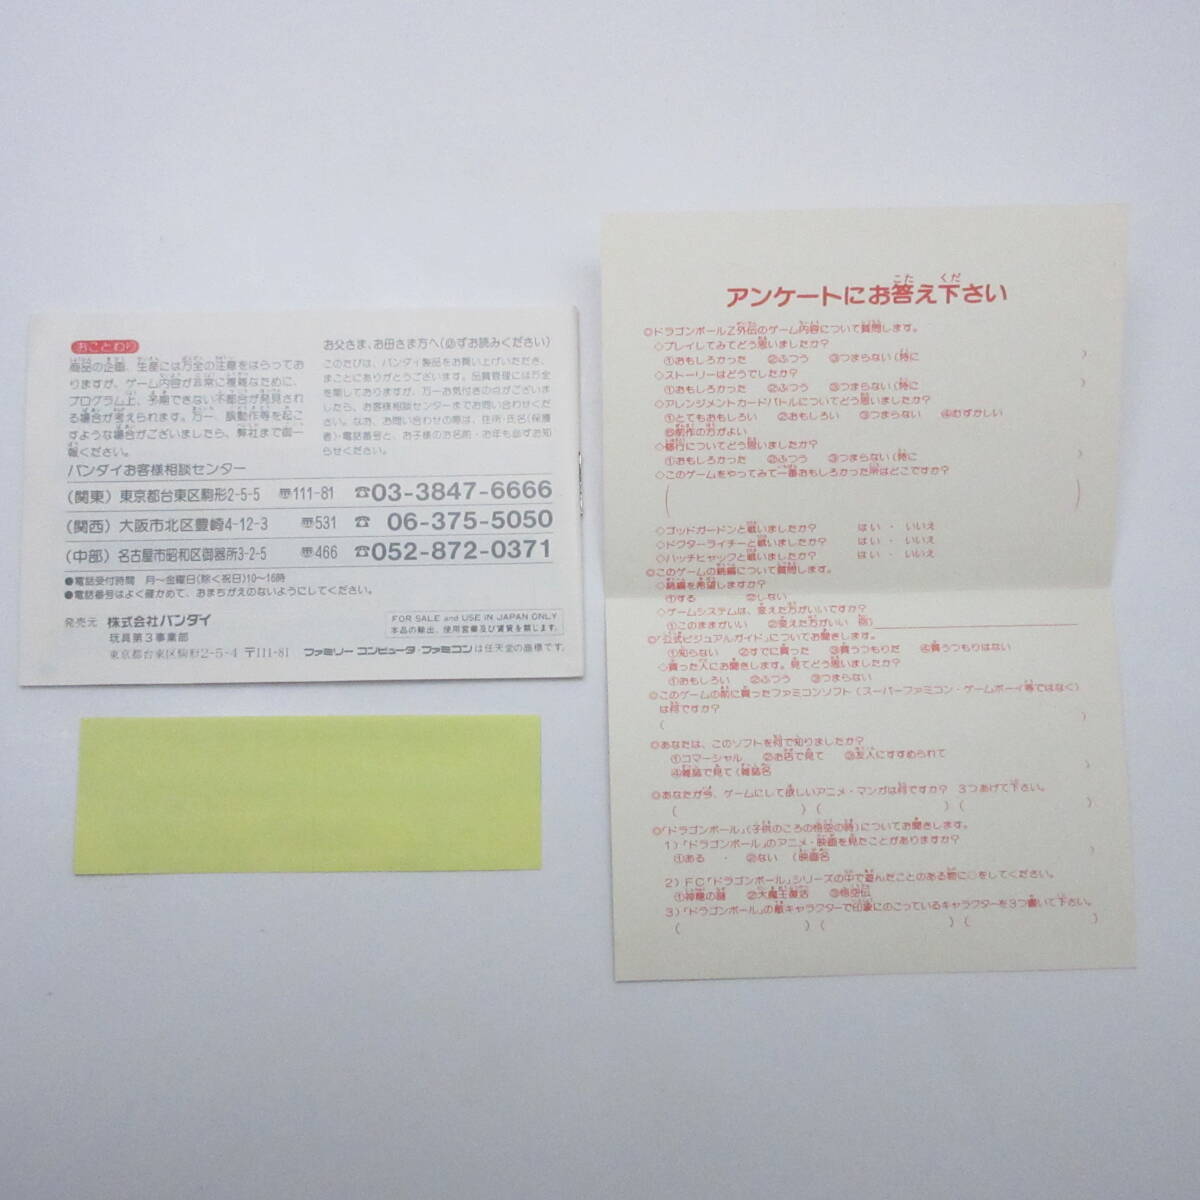 おことわり
商品の企画、生産には万全の注意をはらってお
りますが、ゲーム内容が非常に複雑なために、
プログラム上、予期できない不都合が発見され
る場合が考えられます。万一、誤動作等を起こ
すような場合がございましたら、弊社まで御一
報ください。
お父さま、お母さま方へ(必ずお読みください)
このたびは、バンダイ製品をお買い上げいただき、
まことにありがとうございます。品質管理には万全
を期しておりますが、万一お気付きの点がございま
したら、お客様相談センターまでお問い合わせくだ
さい。なお、お問い合わせの際は、住所・氏名(保護
者)電話番号と、お子様のお名前・お年も必ずお知
らせください。
バンダイお客様相談センター
(関東) 東京都台東区駒形2-5-5 〠111-81 ☎03-3847-6666
(関西) 大阪市北区豊崎4-12-3 〠531 ☎06-375-5050
(中部) 名古屋市昭和区御器所3-2-5 〠466 ☎052-872-0371
●電話受付時間 月〜金曜日(除く祝日)10〜16時
●電話番号はよく確かめて、おまちがえのないようにしてください。
発売元 株式会社バンダイ
玩具第3事業部
東京都台東区駒形2-5-4 〒111-81
FOR SALE and USE IN JAPAN ONLY
本品の輸出、使用営業及び賃貸を禁じます。
ファミリーコンピュータ・ファミコンは任天堂の商標です。
アンケートにお答え下さい
◎ドラゴンボールZ外伝のゲーム内容について質問します。
◇プレイしてみてどう思いましたか?
①おもしろかった ②ふつう ③つまらない(特に )
◇ストーリーはどうでしたか?
①おもしろかった ②ふつう ③つまらない(特に
◇アレンジメントカードバトルについてどう思いましたか?
①とてもおもしろい ②おもしろい ③つまらない ④むずかしい
⑤前作の方がよい
◇修行についてどう思いましたか?
①おもしろかった ②ふつう ③つまらない(特に )
◇このゲームをやってみて一番おもしろかった所はどこですか?
( )
◇ゴッドガードンと戦いましたか? はい ・ いいえ
◇ドクターライチーと戦いましたか? はい ・ いいえ
◇ハッチヒャックと戦いましたか? はい ・ いいえ
◎このゲームの続編について質問します。
◇続編を希望しますか?
①する ②しない
◇ゲームシステムは、変えた方がいいですか?
①このままがいい ②変えた方がいい 例)
◎「公式ビジュアルガイド」についてお聞きします。
①知らない ②すでに買った ③買うつもりだ ④買うつもりはない
◇買った人にお聞きします。見てどう思いましたか?
①おもしろい ②ふつう ③つまらない
◎このゲームの前に買ったファミコンソフト(スーパーファミコン・ゲームボーイ等ではなく)
は何ですか?
( )
◎あなたは、このソフトを何で知りましたか?
①コマーシャル ②お店で見て ③友人にすすめられて
④雑誌で見て(雑誌名 )
◎あなたが今、ゲームにして欲しいアニメ・マンガは何ですか? 3つあげて下さい。
( ) ( ) ( )
◎「ドラゴンボール」(子供のころの悟空の時)についてお聞きします。
1)「ドラゴンボール」のアニメ・映画を見たことがありますか?
①ある ・ ②ない (映画名 )
2)FC「ドラゴンボール」シリーズの中で遊んだことのある物に○をしてください。
①神龍の謎 ②大魔王復活 ③悟空伝
3)「ドラゴンボール」の敵キャラクターで印象にのこっているキャラクターを3つ書いて下さい。
( ) ( ) ( )